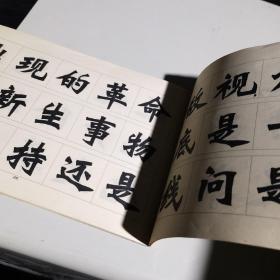 现的革命
新生事物
持还是
视
底是
线问是